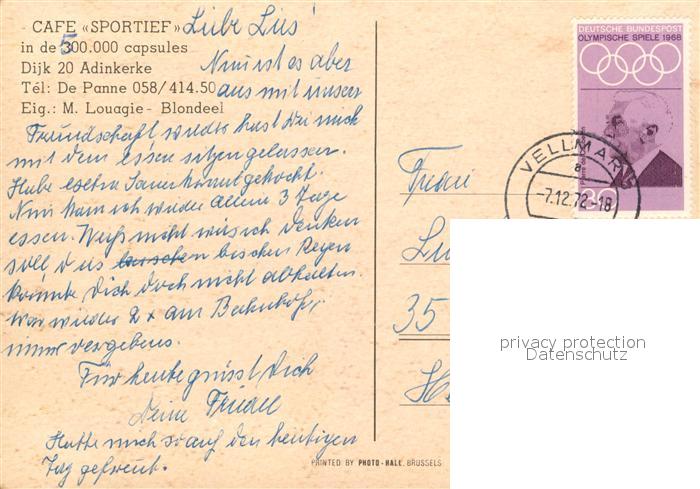 CAFE «SPORTIEF»
in de 500.000 capsules
Dijk 20 Adinkerke
Tél: De Panne 058/414.50
Eig.: M. Louagie - Blondeel
Liebe Lies'
Nun ist es aber
aus mit unser
Freundschaft wieder hast Du mich
mit dem Essen sitzen gelassen.
Habe extra Sauerkraut gekocht.
Nun kann ich wieder allein 3 Tage
essen. Weiß nicht was ich denken
soll das bischen Regen
konnte Dich doch nicht abhalten.
War wieder 2 x am Bahnhof,
umer vergebens.
Für heute grüsst Dich
Deine Friedel
Hatte mich so auf den heutigen
Tag gefreut.
DEUTSCHE BUNDESPOST
OLYMPISCHE SPIELE 1968
VELLMAR
a
-7.12.72-18
Frau
Lu
35
privacy protection
Datenschutz
PRINTED BY PHOTO-HALL, BRUSSELS